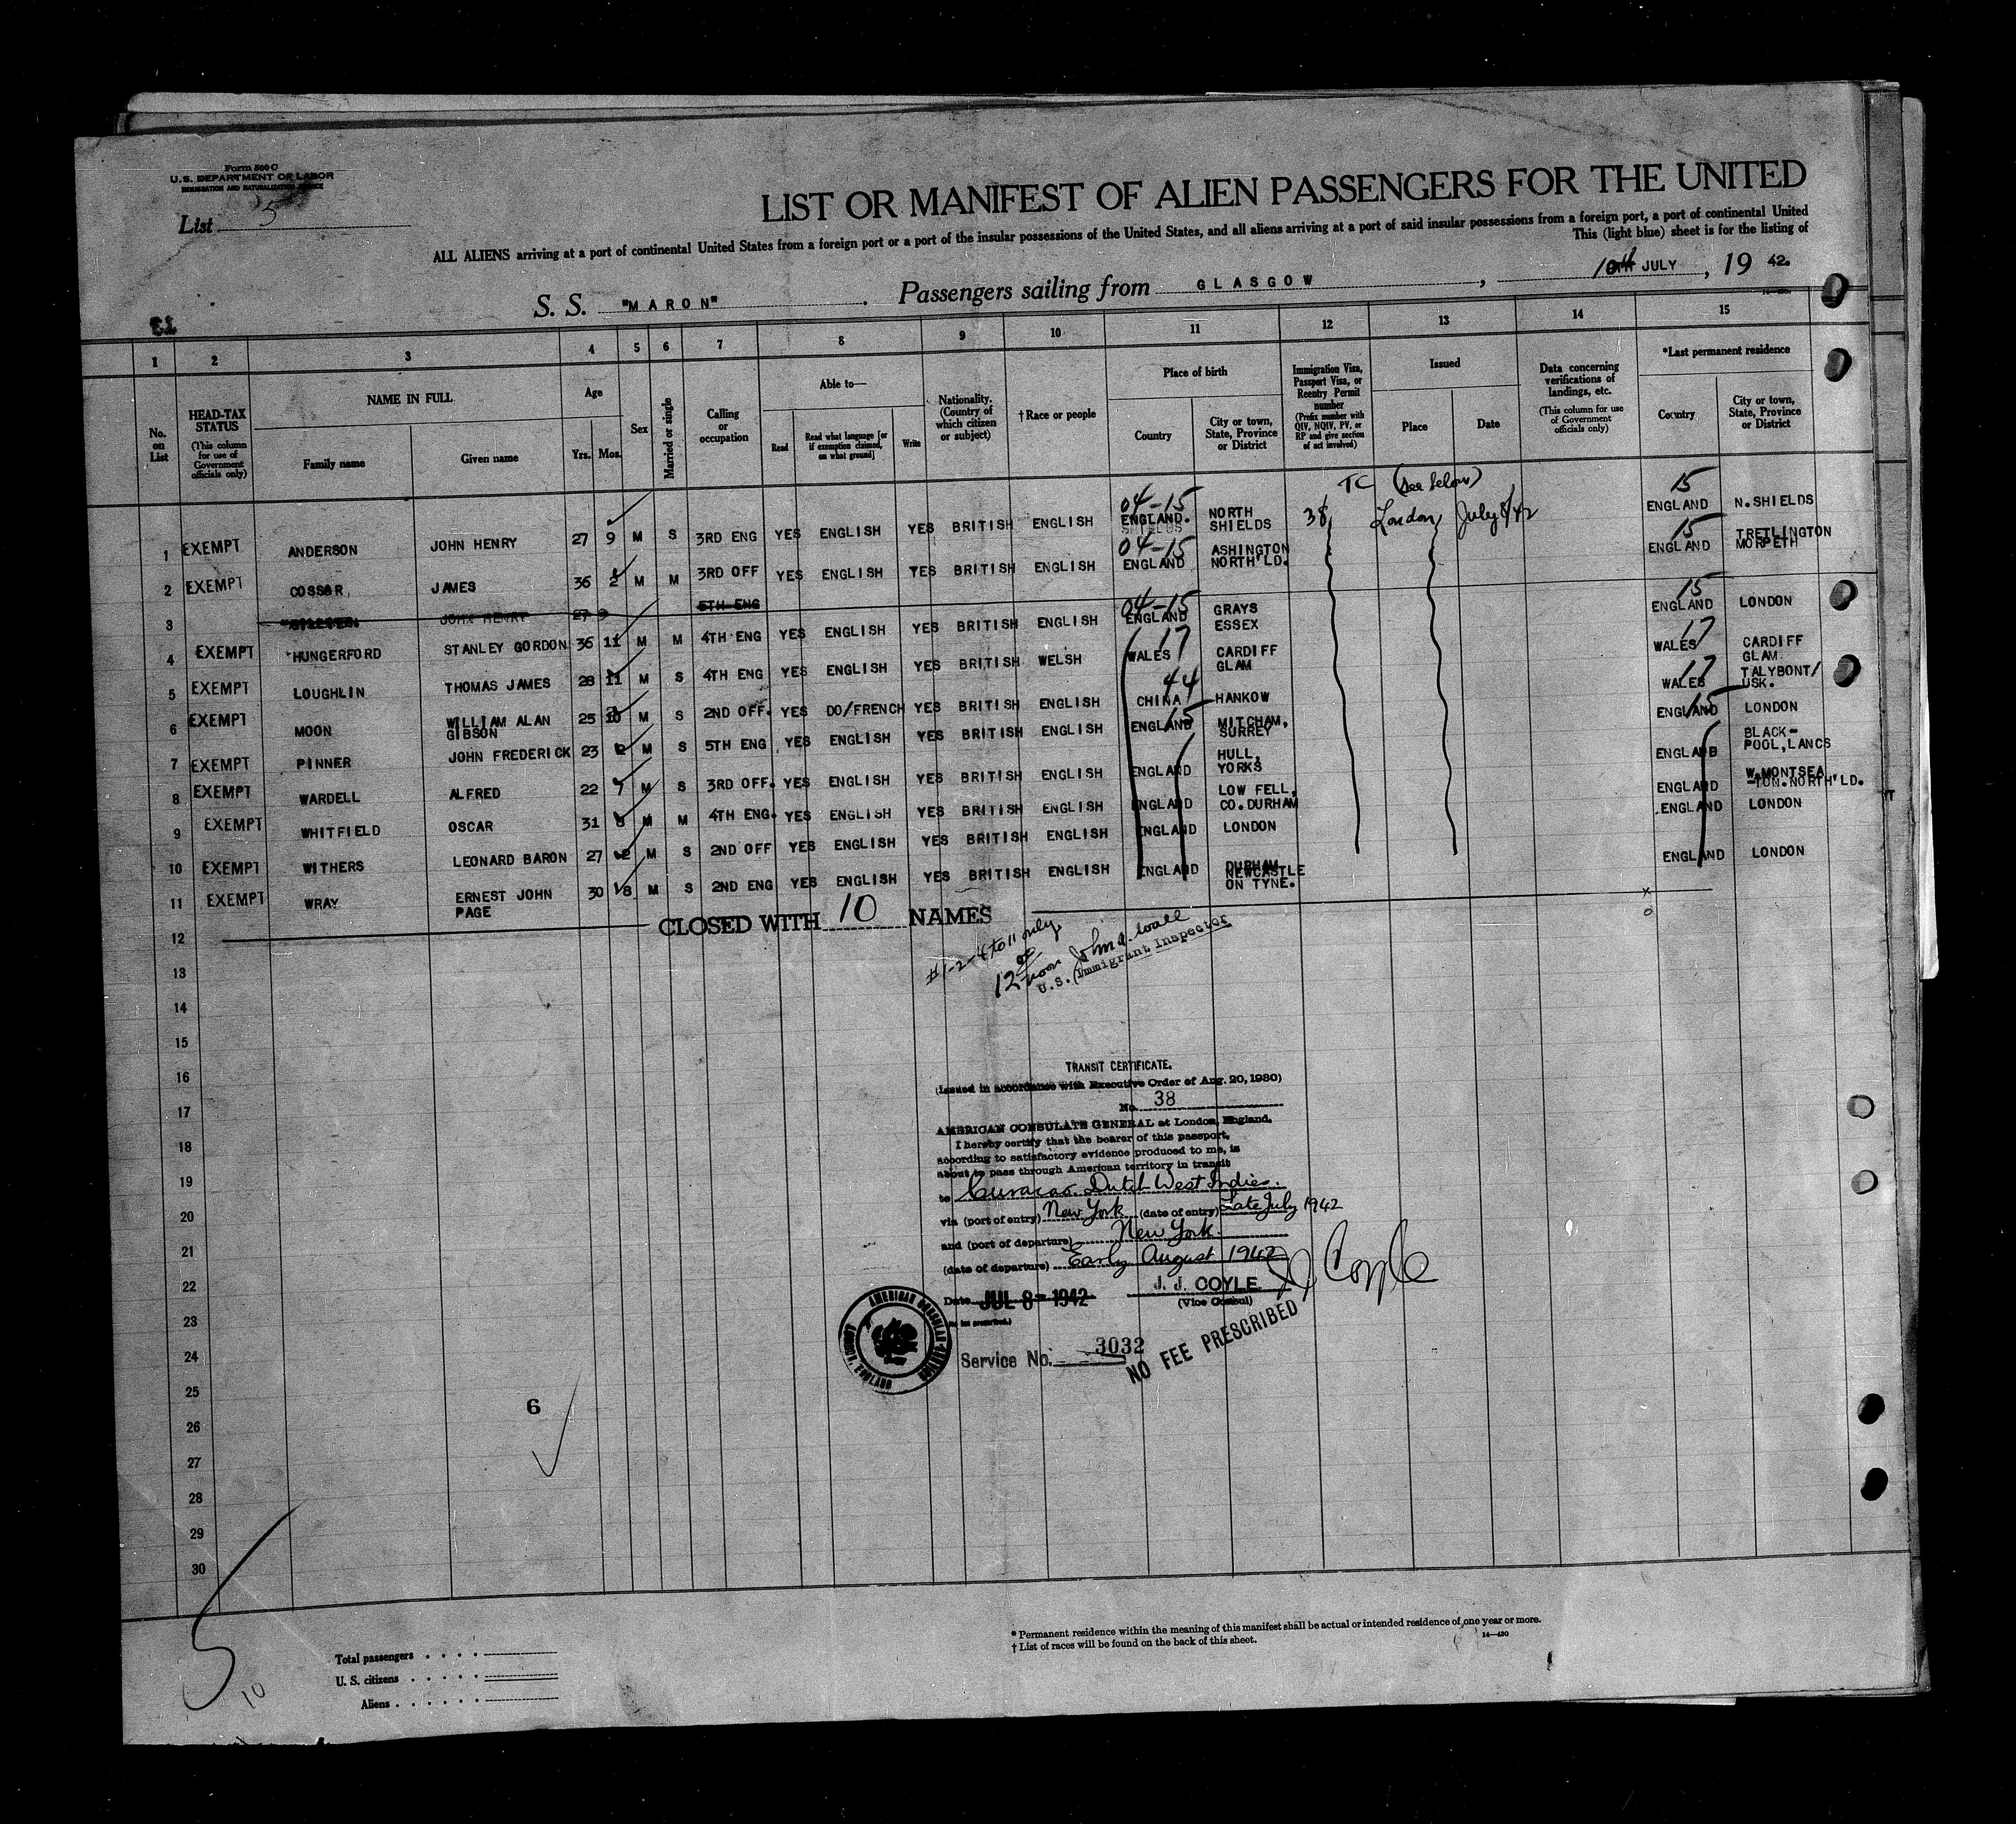 Form 500 C
U.S. DEPARTMENT OF LABOR
IMMIGRATION AND NATURALIZATION SERVICE
List 5
LIST OR MANIFEST OF ALIEN PASSENGERS FOR THE UNITED
ALL ALIENS arriving at a port of continental United States from a foreign port or a port of the insular possessions of the United States, and all aliens arriving at a port of said insular possessions from a foreign port, a port of continental United
This (light blue) sheet is for the listing of
S. S. "MARON" . Passengers sailing from GLASGOW , 10th JULY , 19 42.
1 2 3 4 5 6 7 8 9 10 11 12 13 14 15
No. on List
HEAD-TAX STATUS
(This column for use of Government officials only)
NAME IN FULL
Family name
Given name
Age
Yrs. Mos.
Sex
Married or single
Calling or occupation
Able to—
Read
Read what language [or if exemption claimed, on what ground]
Write
Nationality. (Country of which citizen or subject)
† Race or people
Place of birth
Country
City or town, State, Province or District
Immigration Visa, Passport Visa, or Reentry Permit number
(Prefix number with QIV, NQIV, PV, or RP and give section of act involved)
Issued
Place
Date
Data concerning verifications of landings, etc.
(This column for use of Government officials only)
*Last permanent residence
Country
City or town, State, Province or District
TC (see below)
1 EXEMPT ANDERSON JOHN HENRY 27 9 M S 3RD ENG YES ENGLISH YES BRITISH ENGLISH 04-15 ENGLAND. NORTH SHIELDS 38 London July 8/42 15 ENGLAND N. SHIELDS
2 EXEMPT COSSAR JAMES 36 2 M M 3RD OFF YES ENGLISH YES BRITISH ENGLISH 04-15 ENGLAND ASHINGTON NORTH'LD. 15 ENGLAND TRETLINGTON MORPETH
3 JOHN HENRY 27 9 5TH ENG
4 EXEMPT HUNGERFORD STANLEY GORDON 36 11 M M 4TH ENG YES ENGLISH YES BRITISH ENGLISH 04-15 ENGLAND GRAYS ESSEX 15 ENGLAND LONDON
5 EXEMPT LOUGHLIN THOMAS JAMES 28 11 M S 4TH ENG YES ENGLISH YES BRITISH WELSH WALES 17 CARDIFF GLAM 17 WALES CARDIFF GLAM
6 EXEMPT MOON WILLIAM ALAN GIBSON 25 10 M S 2ND OFF. YES DO/FRENCH YES BRITISH ENGLISH CHINA 44 HANKOW 17 WALES TALYBONT/ USK.
7 EXEMPT PINNER JOHN FREDERICK 23 2 M S 5TH ENG YES ENGLISH YES BRITISH ENGLISH ENGLAND 15 MITCHAM, SURREY 15 ENGLAND LONDON
8 EXEMPT WARDELL ALFRED 22 7 M S 3RD OFF. YES ENGLISH YES BRITISH ENGLISH ENGLAND HULL, YORKS ENGLAND BLACK-POOL, LANCS
9 EXEMPT WHITFIELD OSCAR 31 M M 4TH ENG. YES ENGLISH YES BRITISH ENGLISH ENGLAND LOW FELL, CO. DURHAM ENGLAND W. MONTSEA-TON. NORTH'LD.
10 EXEMPT WITHERS LEONARD BARON 27 2 M S 2ND OFF YES ENGLISH YES BRITISH ENGLISH ENGLAND LONDON ENGLAND LONDON
11 EXEMPT WRAY ERNEST JOHN PAGE 30 8 M S 2ND ENG YES ENGLISH YES BRITISH ENGLISH ENGLAND DURHAM NEWCASTLE ON TYNE. ENGLAND LONDON
12 CLOSED WITH 10 NAMES
#1-2-4 to 11 only
12 noon John A. Wall
U.S. Immigrant Inspector
13
14
15
16
17
18
19
20
21
22
23
24
25
26
27
28
29
30
TRANSIT CERTIFICATE.
(Issued in accordance with Executive Order of Aug. 20, 1930)
No. 38
AMERICAN CONSULATE GENERAL at London, England.
I hereby certify that the bearer of this passport,
according to satisfactory evidence produced to me, is
about to pass through American territory in transit
to Curacao. Dutch West Indies.
via (port of entry) New York (date of entry) Late July 1942
and (port of departure) New York.
(date of departure) Early August 1942
J. J. COYLE
(Vice Consul)
Date JUL 8 - 1942
AMERICAN CONSULAR SERVICE
LONDON, ENGLAND
Service No. 3032
NO FEE PRESCRIBED
6
5
10
Total passengers
U. S. citizens
Aliens
* Permanent residence within the meaning of this manifest shall be actual or intended residence of one year or more.
† List of races will be found on the back of this sheet.
14—430